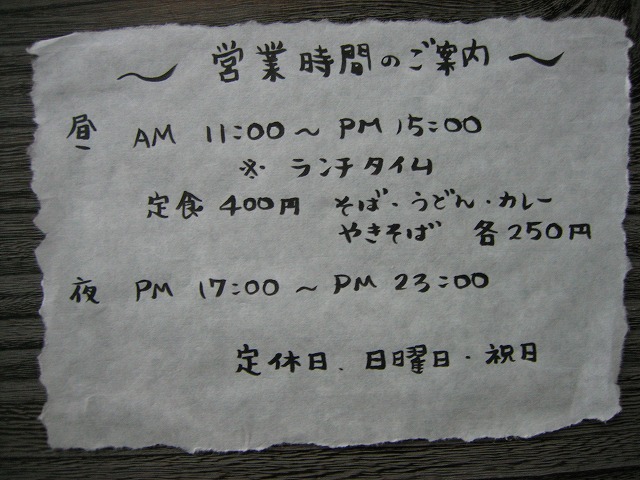 〜 営業時間のご案内 〜
昼 AM 11:00 〜 PM 15:00
※ ランチタイム
定食 400円 そば・うどん・カレー
やきそば 各250円
夜 PM 17:00 〜 PM 23:00
定休日、日曜日・祝日